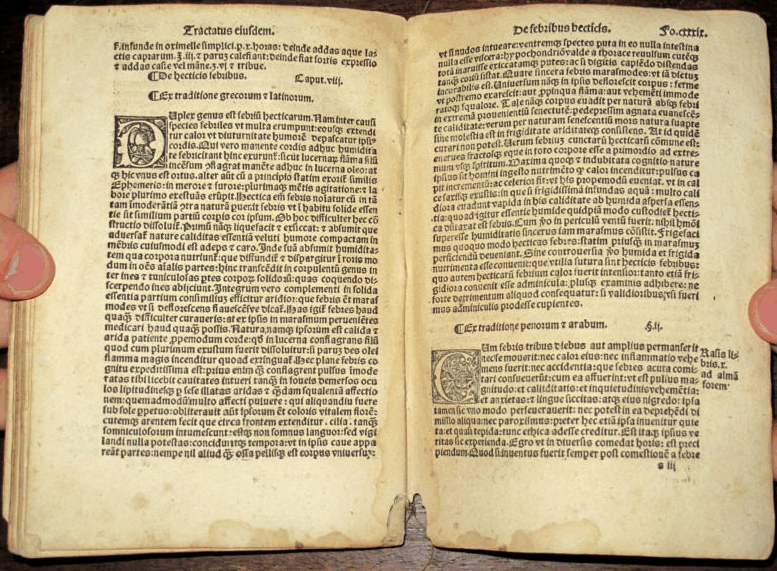 Tractatus eiusdem.
ſ. infunde in oximelle ſimplici. p. x. horas: deinde addas aque lac
tis caprarum. ℥. iij. ⁊ parū calefiant: deinde fiat fortis expreſſio
⁊ addas caſie
¶ De hecticis febribus. Caput. viij.
¶ Ex traditione grecorum ⁊ latinorum.
DUplex genus eſt febriū hecticarum. Nam inter cauſi
ſpecies febriles vt multa erumpunt: eouſqȝ extendi
tur calor vt diuturnitate humorē depaſcatur ipſuȝ
cordis. Qui vero manente cordis adhuc humidita
te febricitant hinc exurunt: ſicut lucernaȝ flāma
incēſum manēte adhuc in lucerna oleo: at
qȝ hic vnus eſt ortus. alter aūt cū a principio ſtatim exorit̉ ſimilis
Ephemerio: in merore ⁊ furore: plurimaqȝ mētis agitatione: ⁊ la
bore plurimo extuās erūpit. Hectica eſt febris
tam īmoderātia p̄ter naturā
tie ſit ſimilium partiū corpis cor ipſum. Ob hoc difficulter hec cō
ſtructio diſſoluit̉. Primū nāqȝ liquefacit ⁊ exiccat: ⁊ abſumit que
aduerſat̉ nature caliditas eſſentiā veluti humore compactam in
mēbris cuiuſmodi eſt adeps ⁊ caro. Inde ſuā abſumit humidita
tem qua corpora nutriunt̉: que diffundit̉ ⁊ diſpargitur
dum in oēs aīalis partes: hinc tranſcēdit in corpulentū genus in
ter ſtines ⁊ tuniculoſas ptes corpoȝ ſolidas: quas coquendo di
ſcerpendo ines abijciunt. Integrum vero complementi in ſolida
eſſentia partium conſimiliuȝ efficitur aridior: que febris
modes vt ſi deflorescens
quaqȝ difficulter curaueris: at ex ipſis in maraſmum perueniētes
medicari haud quaqȝ poſſis. Natura namqȝ ipſorum eſt calida ⁊
arida patiente ꝓpemodum corde: in lucerna conflagrans
quod cum plurimum exuſtum fuerit diſſoluitur: ſi paruȝ des olei
flamma magis incenditur quoad extinguat̉. Hec plane febris co
gnitu expeditiſſima eſt: prius enim qȝ conflagrent pulſus īmode
ratas tibi licebit cauitates intueri tanqȝ in foueis demerſos ocu
los ſe illatas aridas ⁊ qȝdam ſqualentia affectio
nem: quemadmodū multo affecti puluere: qui aliquandiu fuere
ſub ſole obliterauit aūt ipſorum ⁊ coloris vitalem florē:
cutemqȝ arentem fecit que circa frontem extenditur. cilia. tanqȝ
ſomniculoſorum intumeſcunt: eſtqȝ non ſomnus languor: ſed vigi
landi nulla poteſtas: conciduntqȝ tempora: vt in ipſis caue appa
reāt partes: nempe nil aliud qȝ oſſa pelliſqȝ eſt corpus vniuerſuȝ:
De febribus hecticis. Fo. cxxix.
vt ſi nudos intueare: ventremqȝ ſpectes puta in eo nulla inteſtina
nulla eſſe viſcera: hypochondriōȝ valde a thorace reuulſum cutēqȝ
totā inaruiſſe exiccatamqȝ putes: ac ſi digitis capiēdo diſtendas
tanqȝ coriū ſiſtat. Quare ſincera febris maraſmodes: vt iā dictuȝ
incurabilis eſt. Uniuerſum nāqȝ in ipſis defloreſcit corpus: ferme
vt poſtremo exareſcit: aut ꝓpinqua flāma: aut vehemēti immode
ratoqȝ ſqualore. Tale nāqȝ corpus euadit per naturā abſqȝ febri
in extremā prouenientiū ſenectutē: pedepreſſim agnata euaneſcē
te caliditate: verum per naturam ſeneſcentiū mors natura ſuapte
ſine moleſtia eſt in frigiditate ariditateqȝ conſiſtens. At id quidē
curari non poteſt. Uerum febriuȝ cunctarū hecticarū cōmune eſt:
eneruea fractoſqȝ eque in toto corpore eſſe a primordio ad extre
mum vſqȝ ſpiritum. Maxima quoqȝ ⁊ indubitata cognitio nature
ipſius ſit homini ingeſto nutrimēto qȝ calor incenditur: pulſus ca
pit incrementū: ac celerior fit: vt his propemodū eueniat. vt in cal
ce ſaxiſqȝ exuſtis: in que ſi frigidiſſima infundas aquā: multo cali
diora euadunt vapida in his caliditate ab humida aſperſa eſſen-
tia: quo adigitur eſſentie humide quidpiā modo cuſtodiet̉ hecti-
ca dūtaxat eſt febris. Cum ꝓo in periculū venti fuerit. nihil hmōi
ſupereſſe humiditatio ſincerus iam maraſmus cōſiſtit. Frigefaci
mus quoquo modo hecticas febres: ſtatim priuſqȝ in maraſmuȝ
perſciendū deueniant. Sine controuerſia ꝓo humida et frigida
nutrimenta eſſe conuenit: que vtilia futura ſunt hecticis febribus:
quo autem hecticarū febrium calor fuerit intenſior: tanto etiā fri-
gidiora conuenit eſſe adminicula: pluſqȝ examinis adhibere: ne
forte detrimentum aliquod conſequatur: ſi validioribusve fueri
mus adminiculis prodeſſe cupientes.
¶ Ex traditione penorum ⁊ arabum. §. ij.
CUm febris tribus diebus aut amplius permanſerit
necſe mouerit: nec calor eius: nec inflammatio vehe
mens fuerit: nec accidentia: que febres acuta comi-
tari conſueuerūt: cum ea affuerint: vt eſt pulſus ma-
gnitudo: et caliditatio: et inquietudinis vehemētia:
et anxietas: ⁊ lingue ſiccitas: atqȝ eius nigredo: ipſa
tamen ſic vno modo perſeuerauerit: nec poteſt in ea deprehēdi di
miſſio aliqua: nec paroxiſmus: preter hec etiā ipſa inuenitur quie
ta: et quaſi tepida: tunc ethica adeſſe creditur. Eſt itaqȝ ipſius ve
ritas ſic experienda. Egro vt in diuerſis comedat horis: eſt preci
piendum. Quod ſi inuentus fuerit ſemper poſt comeſtionē a febre
Raſis li-
bris. x.
ad almā
ſorem
s iij